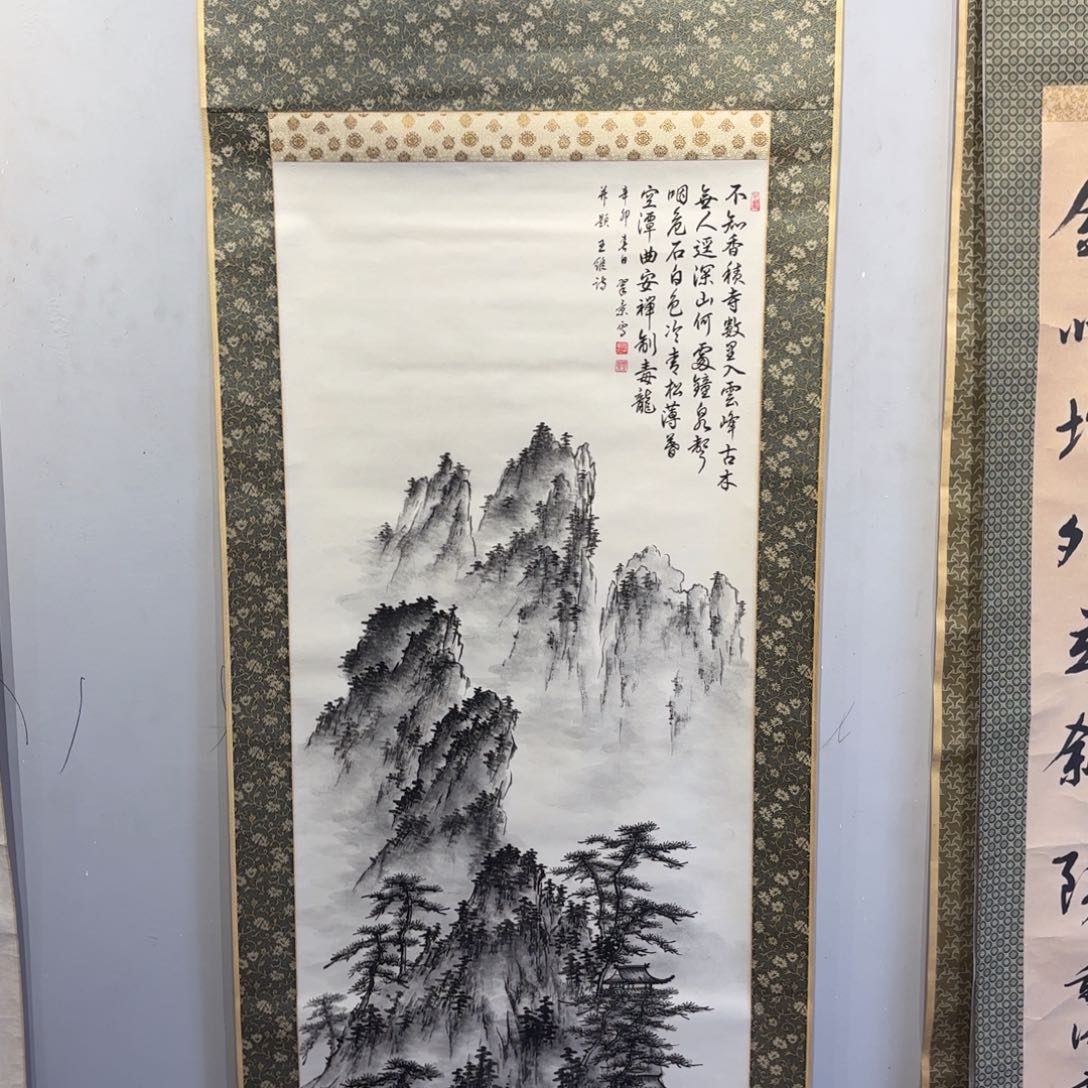 不知香積寺數里入雲峰古木
無人逕深山何處鐘泉聲
咽危石日色冷青松薄暮
空潭曲安禪制毒龍
辛卯春日
并題王維詩